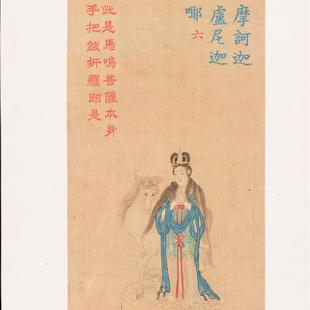 摩訶迦
盧尼迦
㖿六
此是馬鳴菩薩本身
手把鈸折羅即是